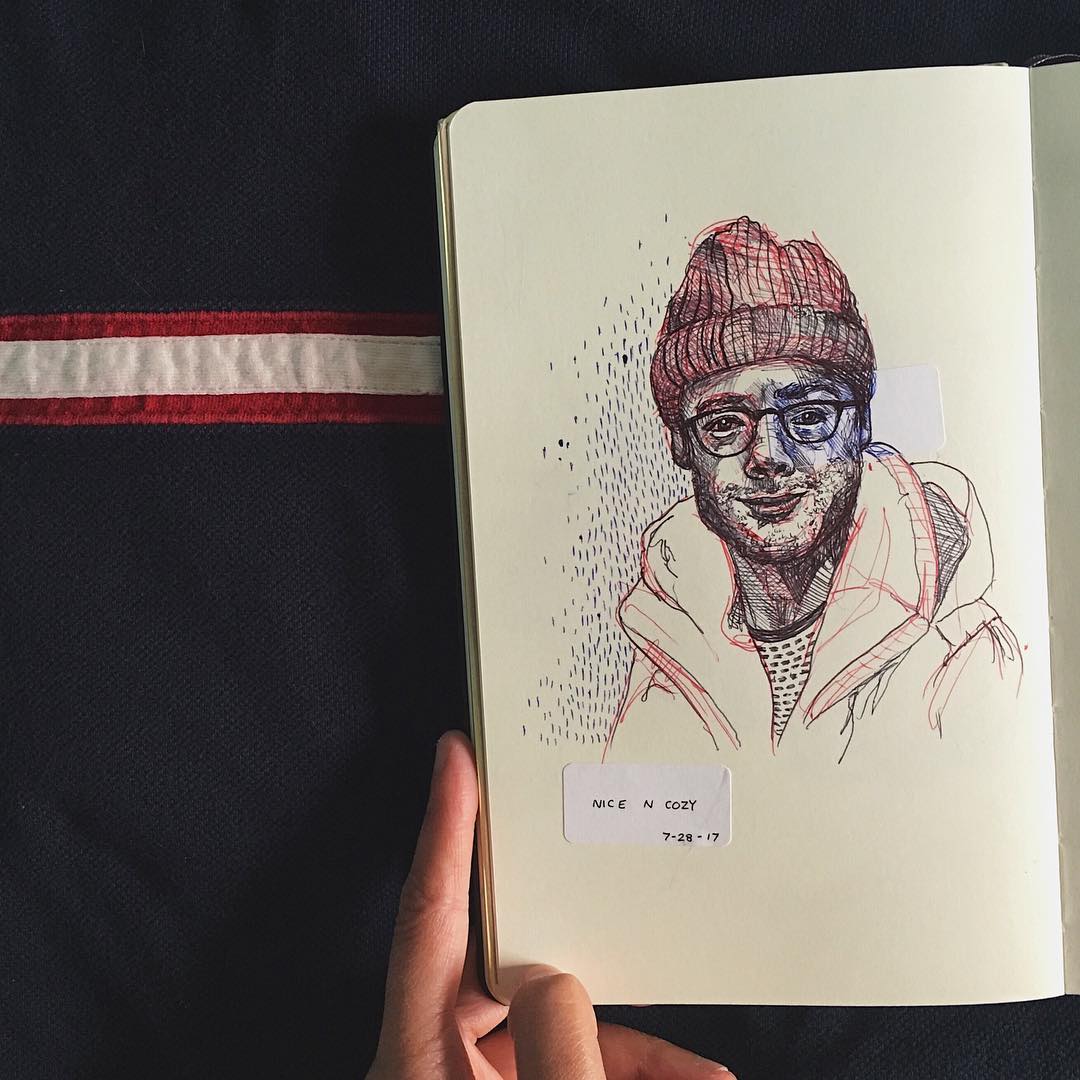 NICE N COZY
7-28-17